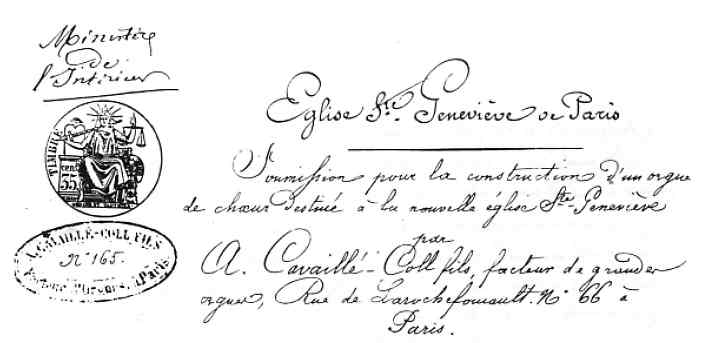 Ministère
de
l'Intérieur
TIMBRE
cen
35
Eglise Ste. Geneviève de Paris
Soumission pour la construction d'un orgue
de chœur destiné à la nouvelle église Ste-Geneviève
par
A. CAVAILLÉ-COLL FILS
No 165.
à Paris
A. Cavaillé-Coll fils, facteur de grandes
orgues, Rue de Larochefoucault. No 66 à
Paris.